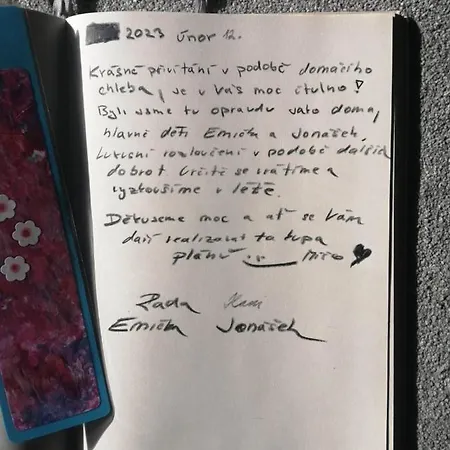 2023 únor 12.
Krásné přivítání v podobě domácího
chleba, je u Vás moc útulno!
Byli jsme tu opravdu jako doma,
hlavně děti Emička a Jonášek,
Luxusní rozloučení v podobě dalších
dobrot Určitě se vrátíme a
vyzkoušíme v létě.
Děkujeme moc a ať se Vám
daří realizovat ta kupa
plánů
Rada Hani
Emička Jonášek